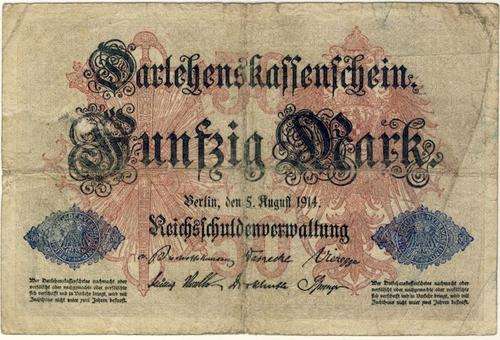 Darlehenskassenschein.
Fünfzig Mark.
Berlin, den 5. August 1914.
Reichsschuldenverwaltung
Wer Darlehenskassenscheine nachmacht oder
verfälscht oder nachgemachte oder verfälschte
sich verschafft und in Verkehr bringt, wird mit
Zuchthaus nicht unter zwei Jahren bestraft.
Wer Darlehenskassenscheine nachmacht oder
verfälscht oder nachgemachte oder verfälschte
sich verschafft und in Verkehr bringt, wird mit
Zuchthaus nicht unter zwei Jahren bestraft.